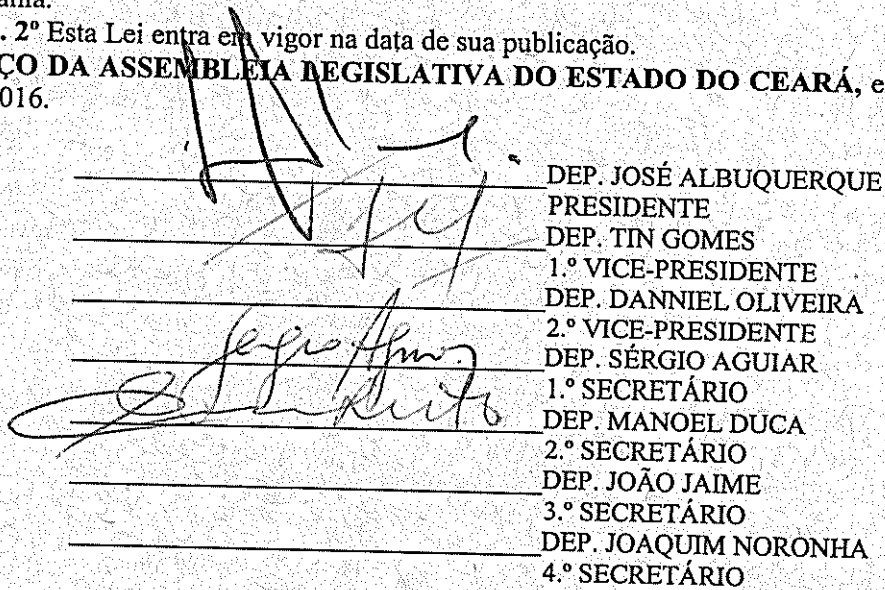 . 2º Esta Lei entra em vigor na data de sua publicação.
ÇO DA ASSEMBLEIA LEGISLATIVA DO ESTADO DO CEARÁ, e
016.
DEP. JOSÉ ALBUQUERQUE
PRESIDENTE
DEP. TIN GOMES
1.º VICE-PRESIDENTE
DEP. DANNIEL OLIVEIRA
2.º VICE-PRESIDENTE
Sergio Aguiar
DEP. SÉRGIO AGUIAR
1.º SECRETÁRIO
DEP. MANOEL DUCA
2.º SECRETÁRIO
DEP. JOÃO JAIME
3.º SECRETÁRIO
DEP. JOAQUIM NORONHA
4.º SECRETÁRIO